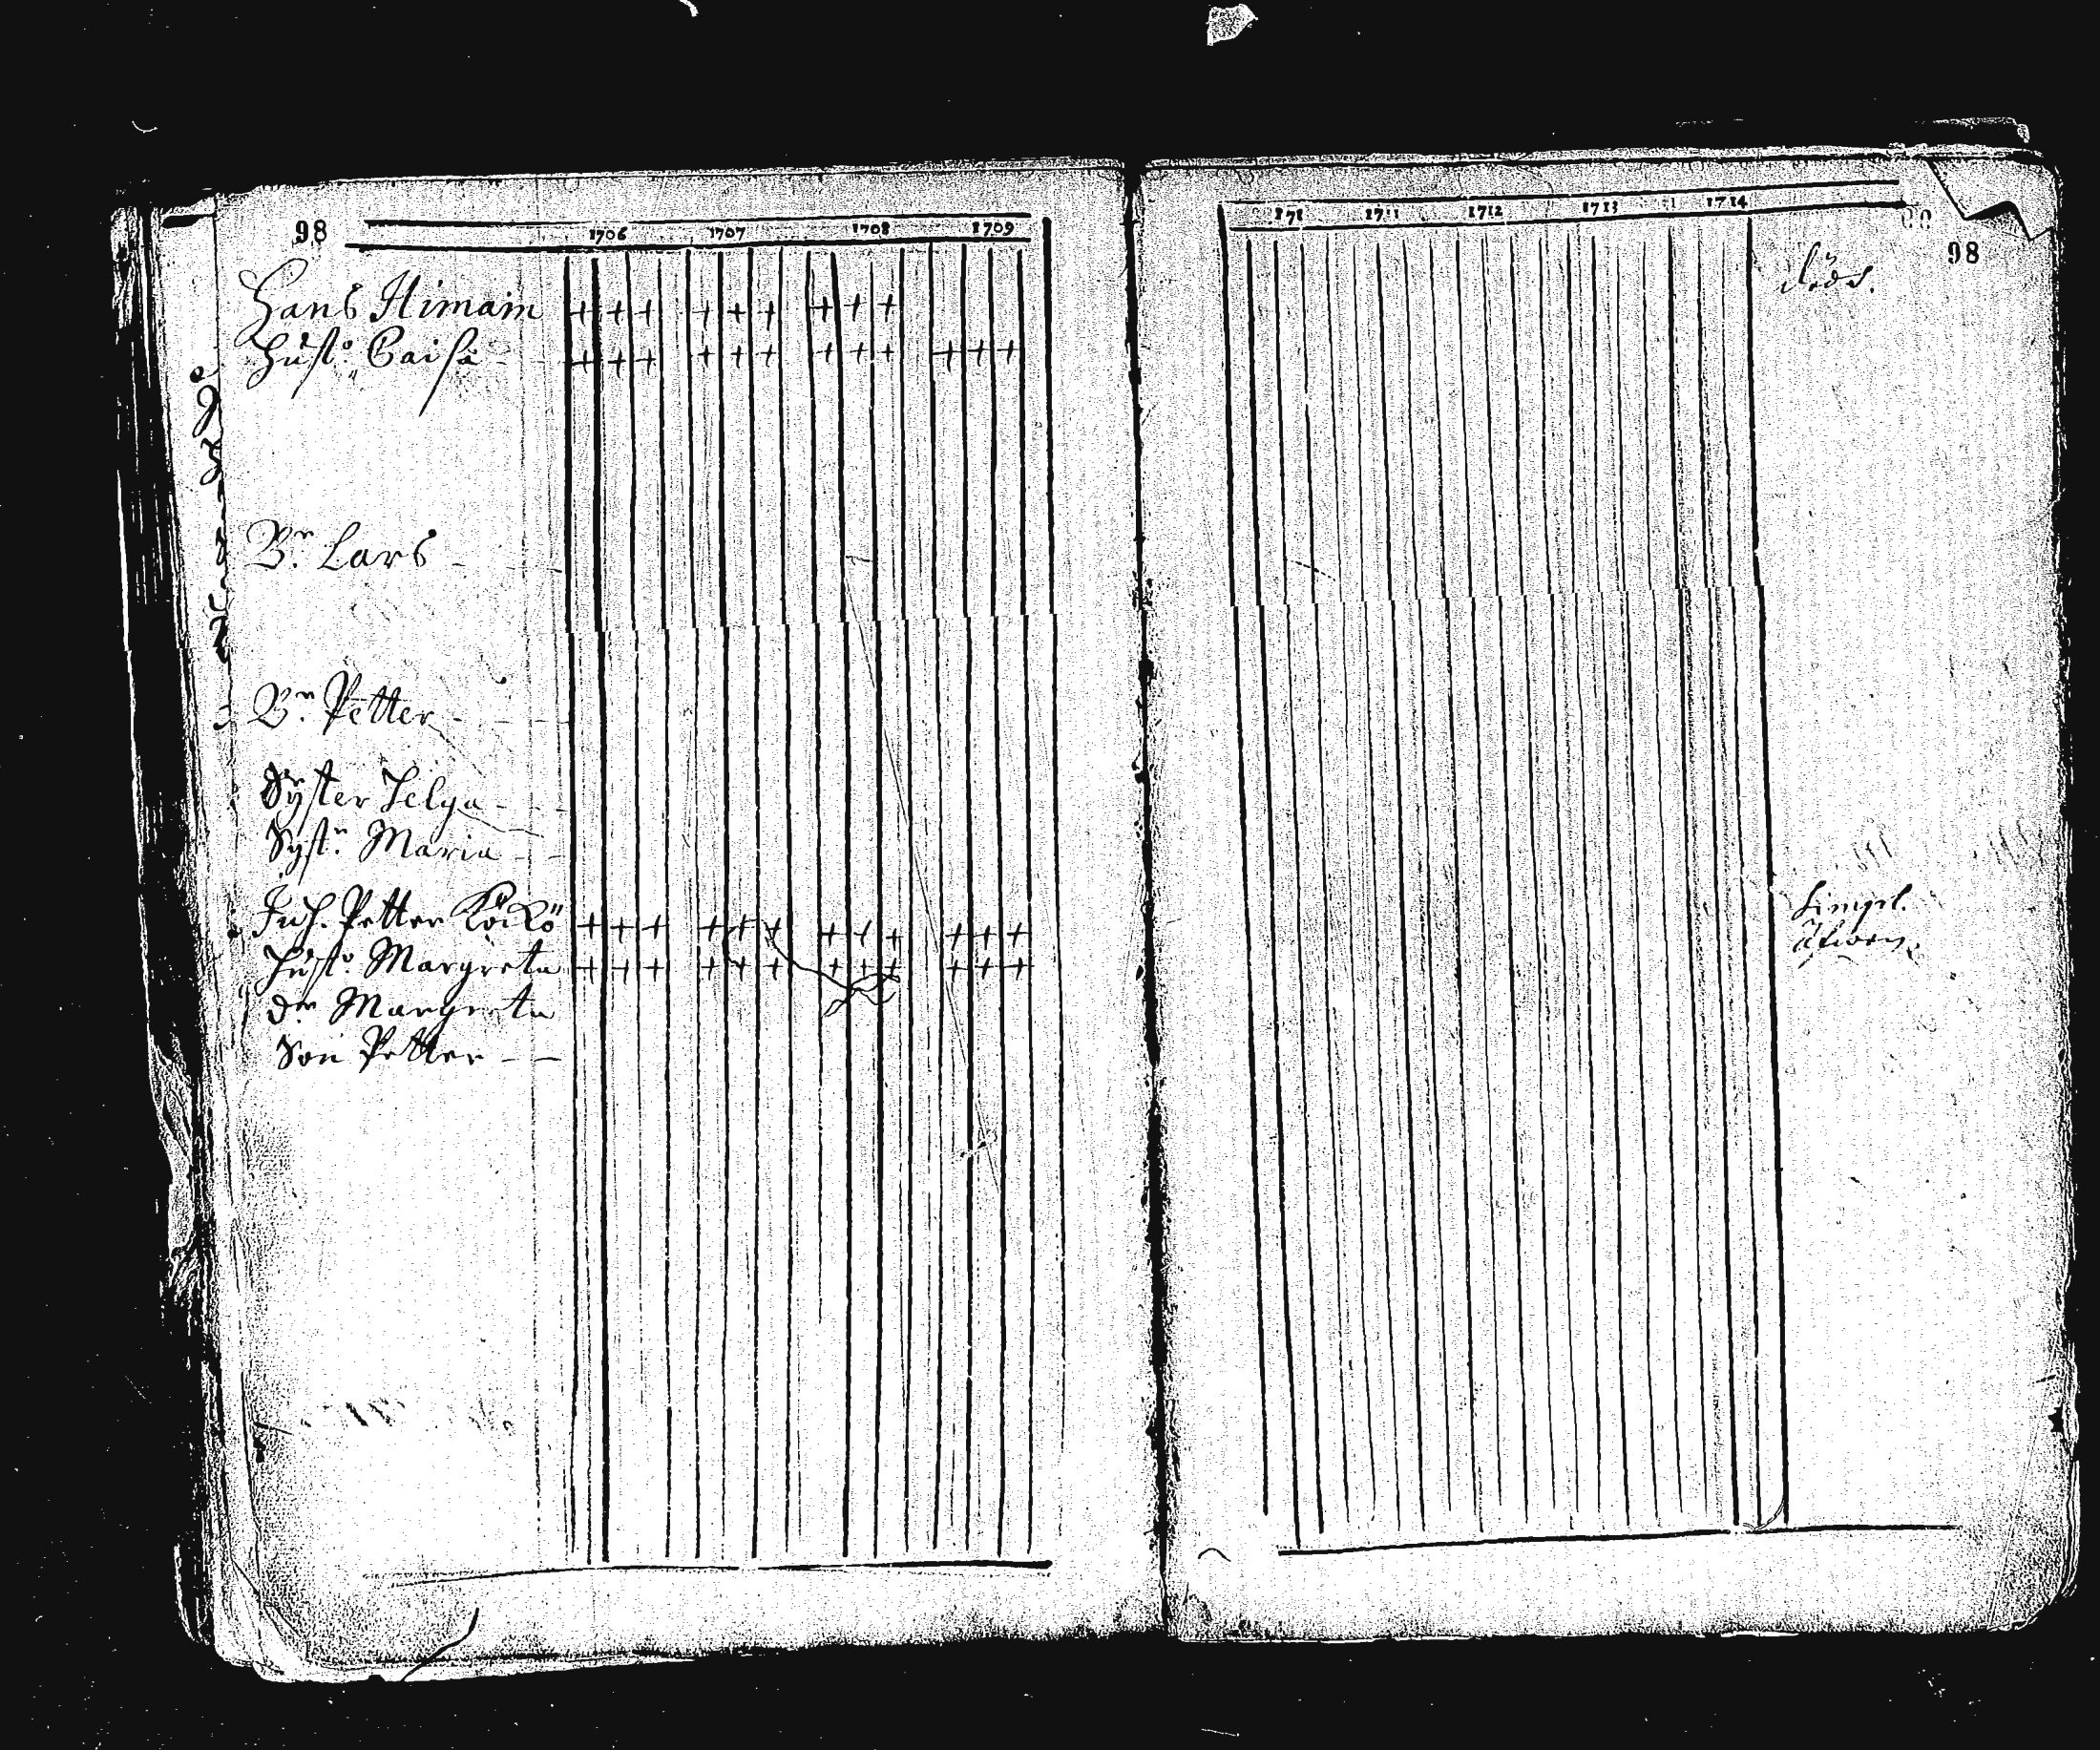 98
1706 1707 1708 1709
Hans Himain + + + + + + + + +
Hust:o Caisa + + + + + + + + + + + +
Br: Lars
Br: Petter
Syster Helga
Syst:r Maria
Inh. Petter + + + + + + + + + + + +
Hust:o Margreta + + + + + + + + + + + +
dr Margreta
Son Petter
171 1711 1712 1713 1714
98
död.